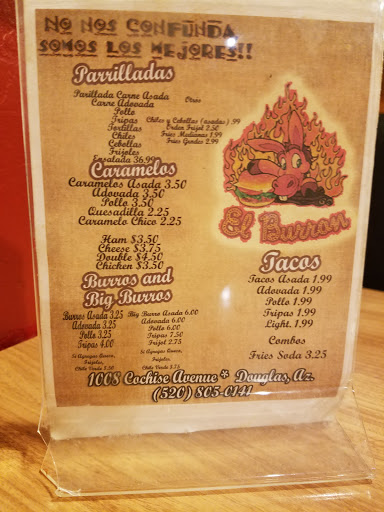 NO NOS CONFUNDA
SOMOS LOS MEJORES!!
Parrilladas
Parillada Carne Asada
Carne Adovada
Pollo
Tripas
Tortillas
Chiles
Cebollas
Frijoles
Ensalada 36.99
Otros
Chiles y Cebollas (asadas) .99
Orden Frijol 2.50
Fries Medianas 1.99
Fries Grandes 2.99
Caramelos
Caramelos Asada 3.50
Adovada 3.50
Pollo 3.50
Quesadilla 2.25
Caramelo Chico 2.25
Ham $3.50
Cheese $3.75
Double $4.50
Chicken $3.50
Burros and
Big Burros
Burros Asada 3.25
Adovada 3.25
Pollo 3.25
Tripas 4.00
Big Burro Asada 6.00
Adovada 6.00
Pollo 6.00
Tripas 7.50
Frijol 2.75
El Burron
Tacos
Tacos Asada 1.99
Adovada 1.99
Pollo 1.99
Tripas 1.99
Light. 1.99
Combos
Fries Soda 3.25
1008 Cochise Avenue * Douglas, Az.
(520) 805-0141